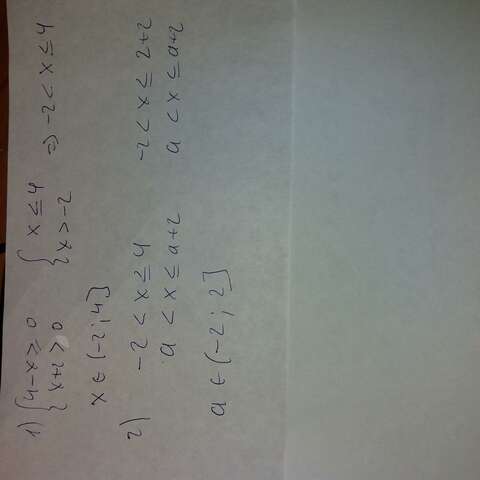 1) { 4-x ≥ 0 { x ≤ 4 => -2 < x ≤ 4
{ x+2 > 0 { x > -2
x ∈ (-2; 4]
2) -2 < x ≤ 4 -2 < x ≤ 2+2
a < x ≤ a+2 a < x ≤ a+2
a ∈ (-2; 2]